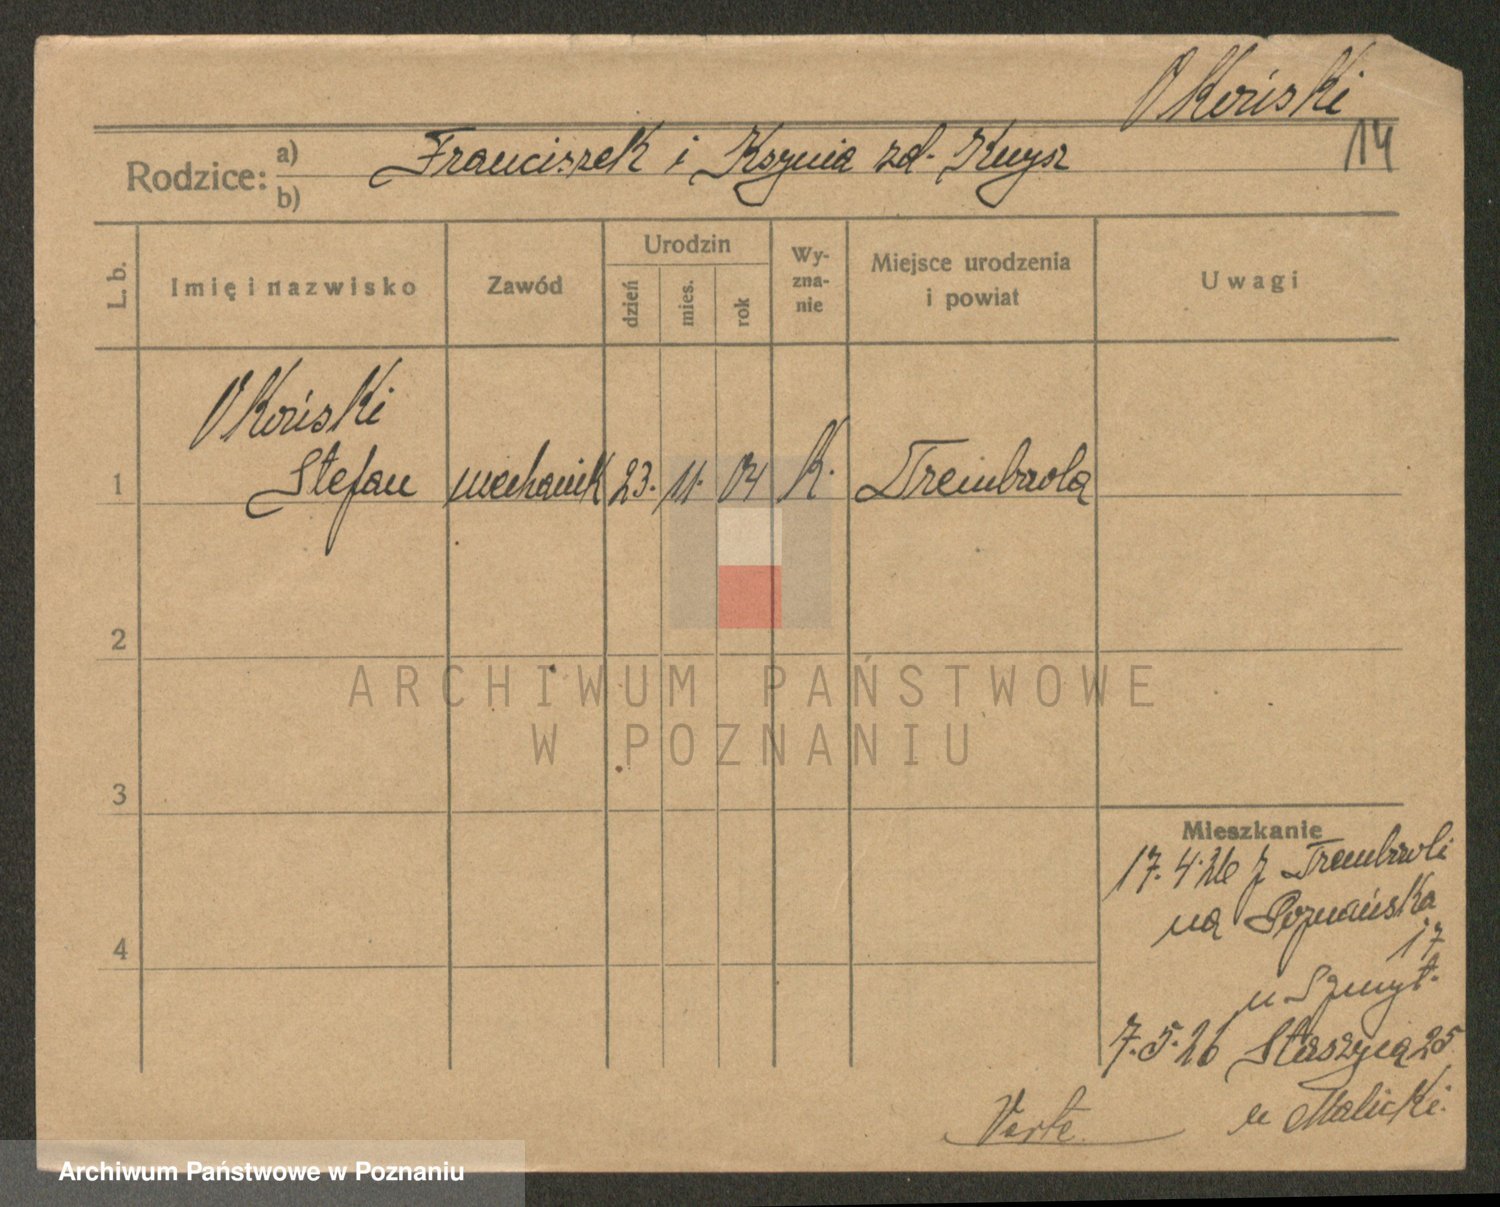 Okoński
14
Rodzice: a) Franciszek i Ksynia zd. Knysz
b)
L. b. Imię i nazwisko Zawód Urodzin dzień mies. rok Wy-zna-nie Miejsce urodzenia i powiat Uwagi
Okoński
1 Stefan mechanik 23. 11. 04 K. Trembowla
2
ARCHIWUM PAŃSTWOWE
W POZNANIU
3
Mieszkanie
17. 4. 26 z Trembowli
na Poznańska
17
u Szmyt.
4
7. 5. 26 Staszyca 25
u Malicki.
Verte
Archiwum Państwowe w Poznaniu